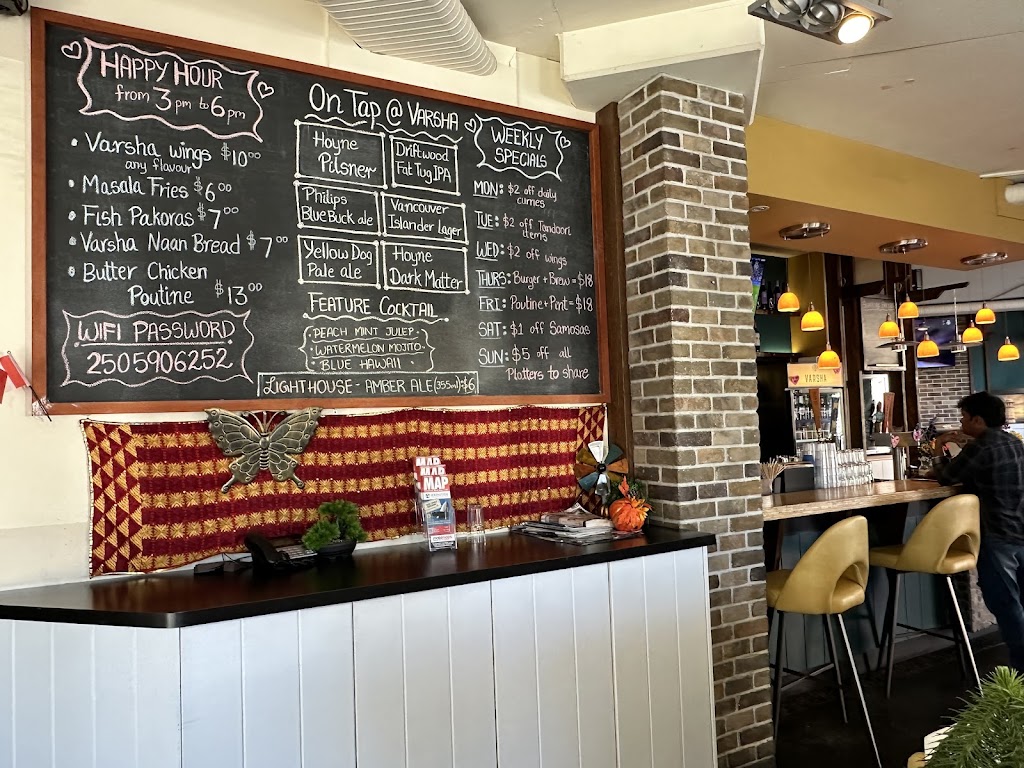 HAPPY HOUR
from 3 pm to 6 pm
• Varsha wings $10⁰⁰
any flavour
• Masala Fries $6⁰⁰
• Fish Pakoras $7⁰⁰
• Varsha Naan Bread $7⁰⁰
• Butter Chicken
Poutine $13⁰⁰
WIFI PASSWORD
2505906252
On Tap @ VARSHA
Hoyne
Pilsner
Driftwood
Fat Tug IPA
Philips
Blue Buck ale
Vancouver
Islander Lager
Yellow Dog
Pale ale
Hoyne
Dark Matter
FEATURE COCKTAIL
PEACH MINT JULEP
WATERMELON MOJITO
BLUE HAWAII
LIGHTHOUSE - AMBER ALE (355ml) $6
WEEKLY
SPECIALS
MON: $2 off daily
curries
TUE: $2 off Tandoori
items
WED: $2 off wings
THURS: Burger + Brew = $18
FRI: Poutine + Pint = $18
SAT: $1 off Samosas
SUN: $5 off all
Platters to share
MAD
MAD
MAP
VARSHA